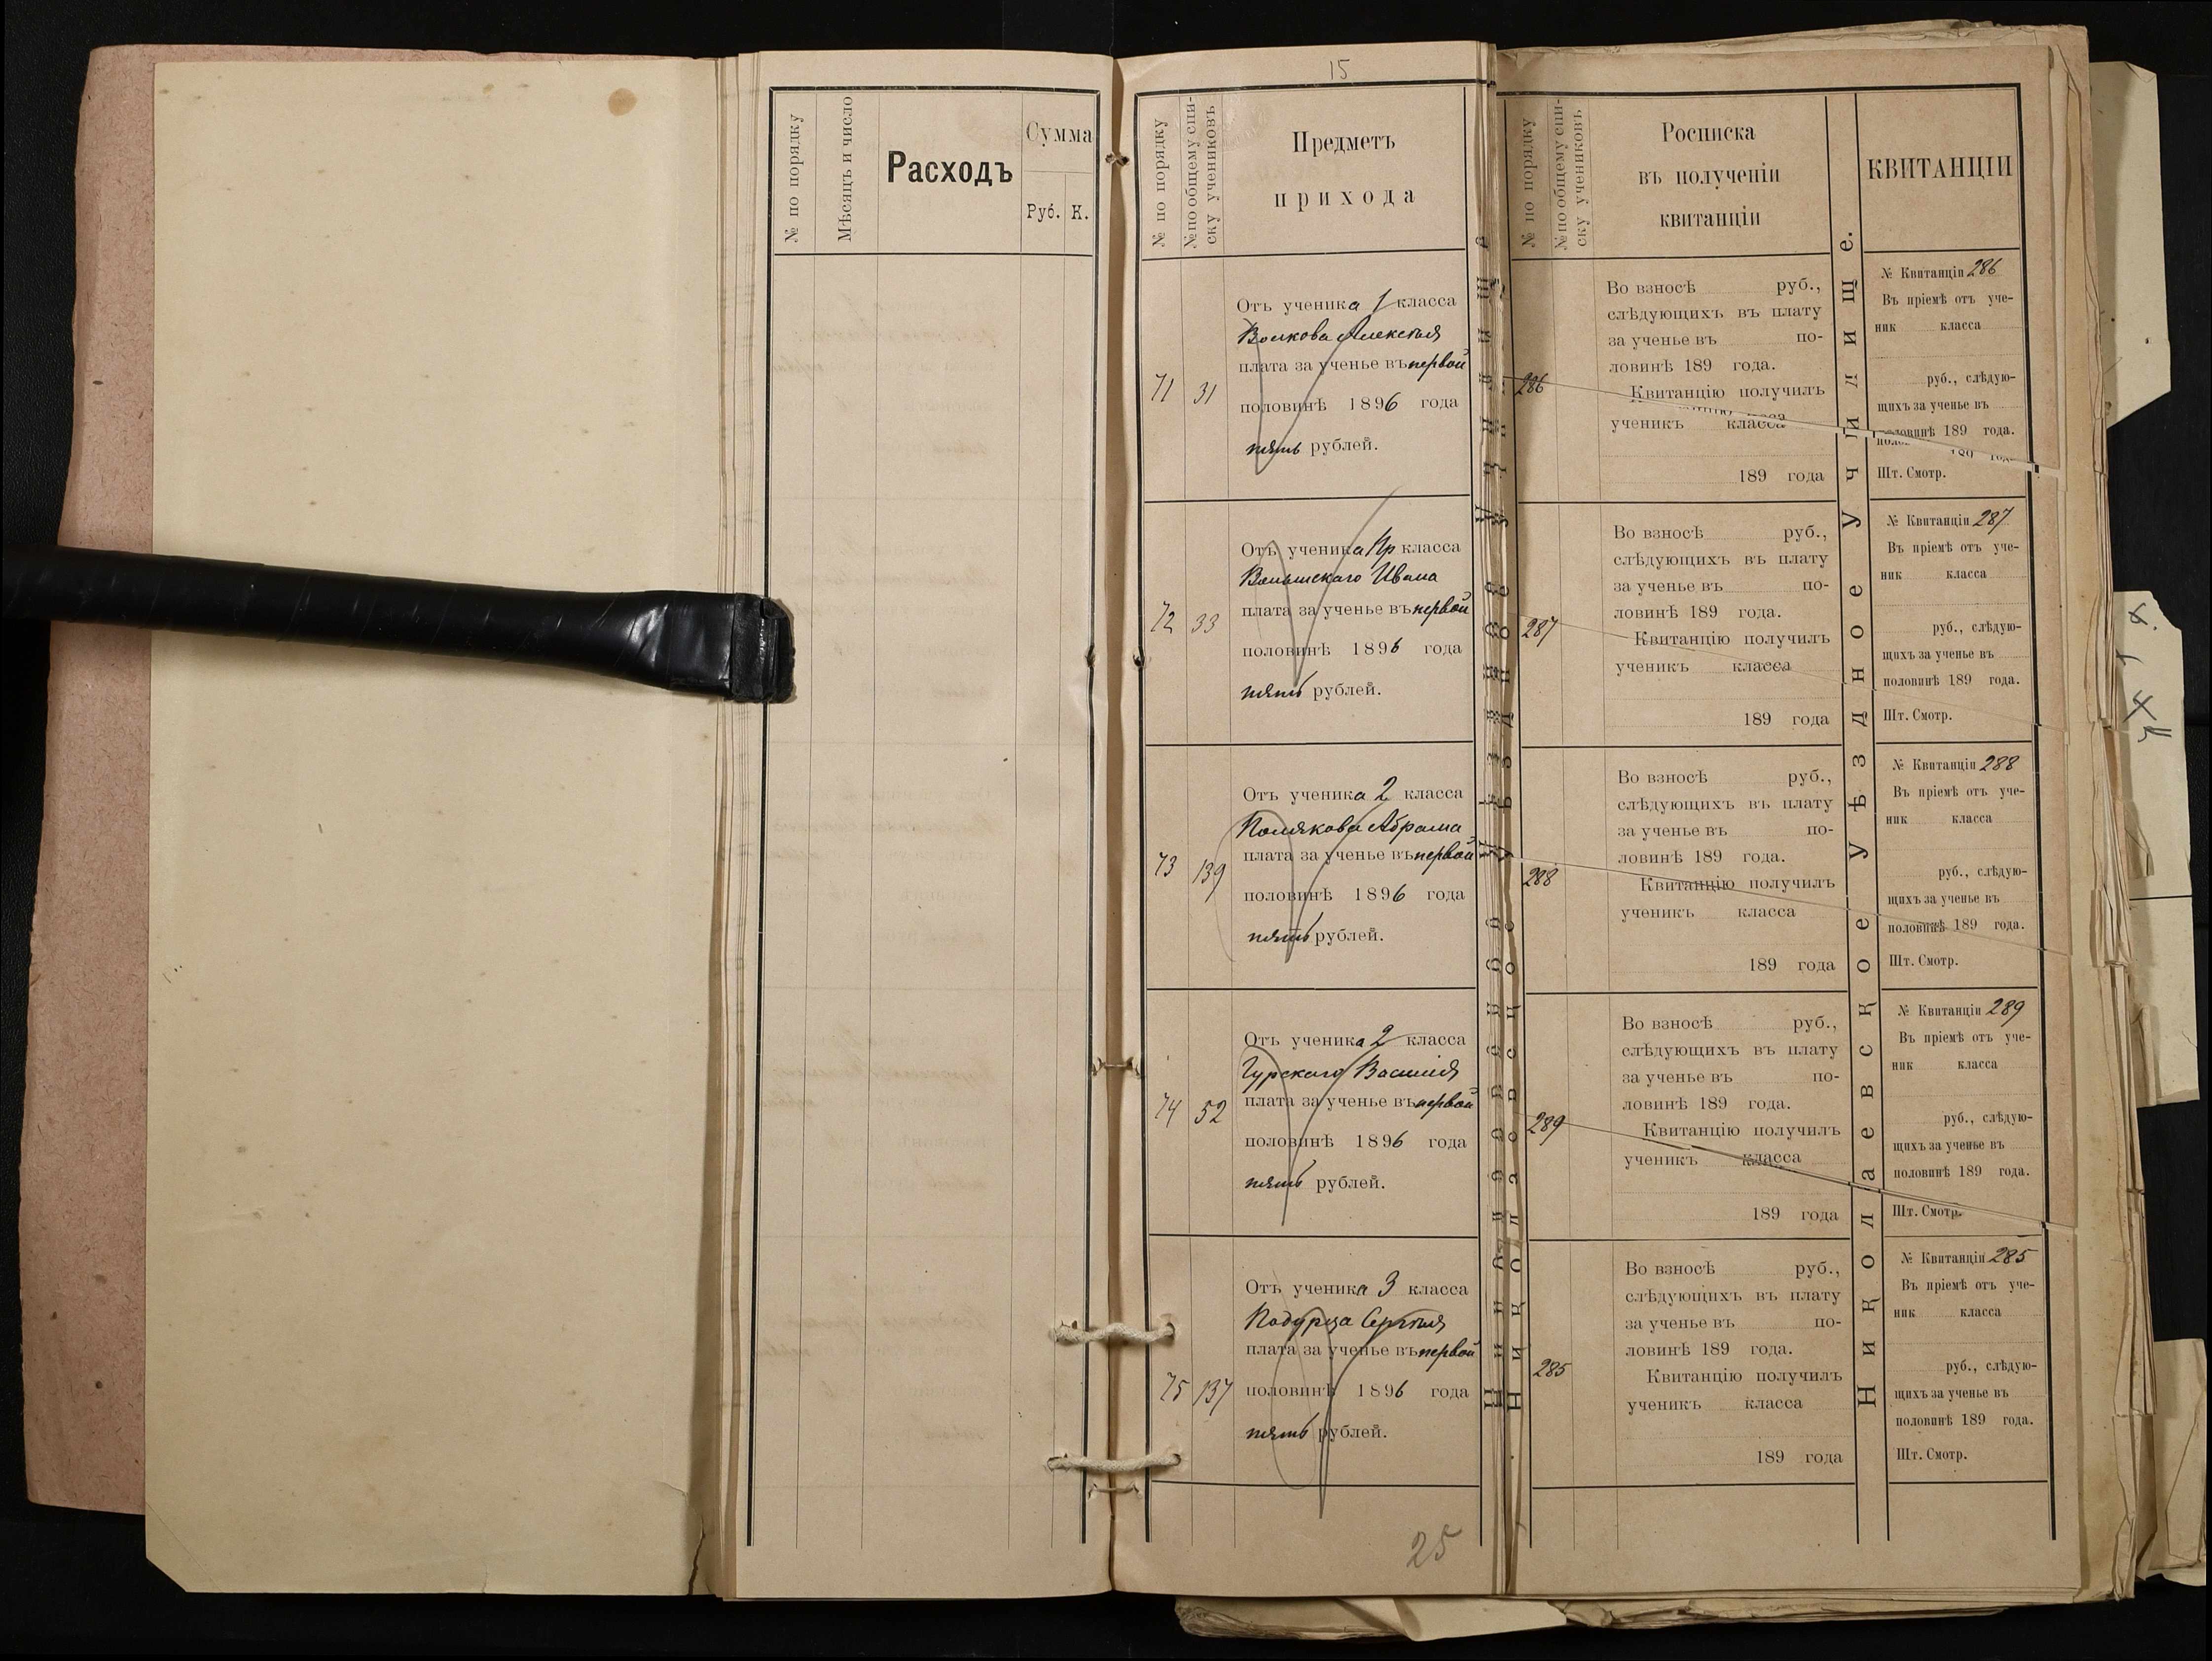 № по порядку
Мѣсяцъ и число
Расходъ
Сумма
Руб. К.
15
№ по порядку
№ по общему спи-
ску учениковъ
Предметъ
прихода
71 31
Отъ ученика 1 класса
Волкова Алексѣя
плата за ученье въ первой
половинѣ 1896 года
пять рублей.
72 33
Отъ ученика Пр класса
Ивана
плата за ученье въ первой
половинѣ 1896 года
пять рублей.
73 139
Отъ ученика 2 класса
Полякова Абрама
плата за ученье въ первой
половинѣ 1896 года
пять рублей.
74 52
Отъ ученика 2 класса
Гурскаго Василія
плата за ученье въ первой
половинѣ 1896 года
пять рублей.
75 137
Отъ ученика 3 класса
Сергѣя
плата за ученье въ первой
половинѣ 1896 года
пять рублей.
25
№ по порядку
№ по общему спи-
ску учениковъ.
Росписка
въ полученіи
квитанціи
286
Во взносѣ руб.,
слѣдующихъ въ плату
за ученье въ по-
ловинѣ 189 года.
Квитанцію получилъ
ученикъ класса
189 года
287
Во взносѣ руб.,
слѣдующихъ въ плату
за ученье въ по-
ловинѣ 189 года.
Квитанцію получилъ
ученикъ класса
189 года
288
Во взносѣ руб.,
слѣдующихъ въ плату
за ученье въ по-
ловинѣ 189 года.
Квитанцію получилъ
ученикъ класса
189 года
289
Во взносѣ руб.,
слѣдующихъ въ плату
за ученье въ по-
ловинѣ 189 года.
Квитанцію получилъ
ученикъ класса
189 года
285
Во взносѣ руб.,
слѣдующихъ въ плату
за ученье въ по-
ловинѣ 189 года.
Квитанцію получилъ
ученикъ класса
189 года
Николаевское Уѣздное Училище.
КВИТАНЦІИ
№ Квитанціи 286
Въ пріемѣ отъ уче-
ник класса
руб., слѣдую-
щихъ за ученье въ
половинѣ 189 года.
Шт. Смотр.
№ Квитанціи 287
Въ пріемѣ отъ уче-
ник класса
руб., слѣдую-
щихъ за ученье въ
половинѣ 189 года.
Шт. Смотр.
№ Квитанціи 288
Въ пріемѣ отъ уче-
ник класса
руб., слѣдую-
щихъ за ученье въ
половинѣ 189 года.
Шт. Смотр.
№ Квитанціи 289
Въ пріемѣ отъ уче-
ник класса
руб., слѣдую-
щихъ за ученье въ
половинѣ 189 года.
Шт. Смотр.
№ Квитанціи 285
Въ пріемѣ отъ уче-
ник класса
руб., слѣдую-
щихъ за ученье въ
половинѣ 189 года.
Шт. Смотр.